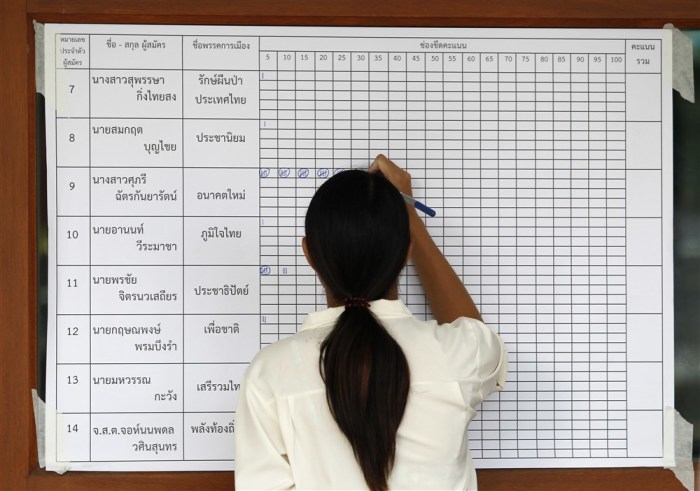 หมายเลข
ประจำตัว
ผู้สมัคร
ชื่อ - สกุล ผู้สมัคร
ชื่อพรรคการเมือง
ช่องขีดคะแนน
5 10 15 20 25 30 35 40 45 50 55 60 65 70 75 80 85 90 95 100
คะแนน
รวม
7
นางสาวสุพรรษา
กิ่งไทยสง
รักษ์ผืนป่า
ประเทศไทย
8
นายสมกฤต
บุญไชย
ประชานิยม
9
นางสาวศุภรี
ฉัตรกันยารัตน์
อนาคตใหม่
10
นายอานนท์
วีระมาชา
ภูมิใจไทย
11
นายพรชัย
จิตรนวเสถียร
ประชาธิปัตย์
12
นายกฤษณพงษ์
พรมบึงรำ
เพื่อชาติ
13
นายมหวรรณ
กะวัง
เสรีรวมไท
14
จ.ส.ต.จอห์นนพดล
วศินสุนทร
พลังท้องถิ่